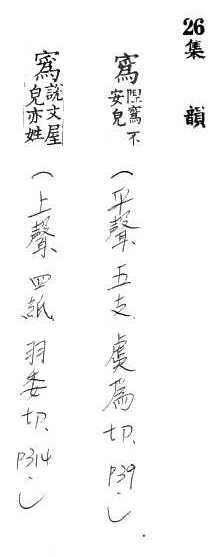 26集 韻
寪隉寪不安皃(平聲、五支、虞爲切、P39.)
寪說文屋皃亦姓(上聲、四紙、羽委切、P314.)